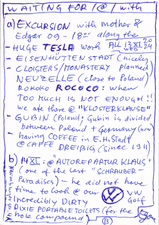 WAITING FOR / @ / WITH
a) EXCURSION with mother &
Edgar 09-18:00 along the
HUGE TESLA works ALL
EISENHÜTTENSTADT (nickel)
CLOISTERS/MONASTERY planned
NEUZELLE (close to Poland)
ROKOKO ROCOCO: WHEN
TOO MUCH IS NOT ENOUGH!!
We ate there @ "KLOSTERKLAUSE"
GUBIN (Poland); Gubin is divided
between Poland & Germany
having COFFEE in E.H.Stadt
@ CAFÉ DREIBIG (since 1911)
b) @ AUTOREPARATUR KLAUS
(one of the last "SCHRAUBER-
Paradises") — he did not have
time to look @ our VW Golf
INCREDIBLY DIRTY
DIXIE PORTABLE TOILETS (for the
whole compound)